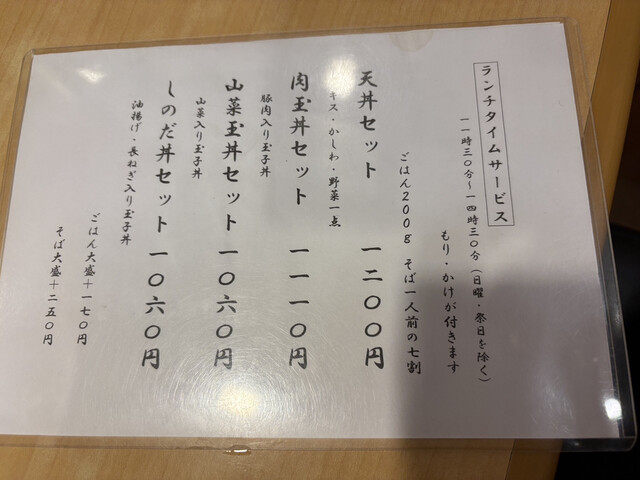 ランチタイムサービス
一一時三〇分〜一四時三〇分(日曜・祭日を除く)
もり・かけが付きます
ごはん200g そば一人前の七割
天丼セット 一二〇〇円
キス・かしわ・野菜一点
肉玉丼セット 一一一〇円
豚肉入り玉子丼
山菜玉丼セット 一〇六〇円
山菜入り玉子丼
しのだ丼セット 一〇六〇円
油揚げ・長ねぎ入り玉子丼
ごはん大盛+一七〇円
そば大盛+二五〇円